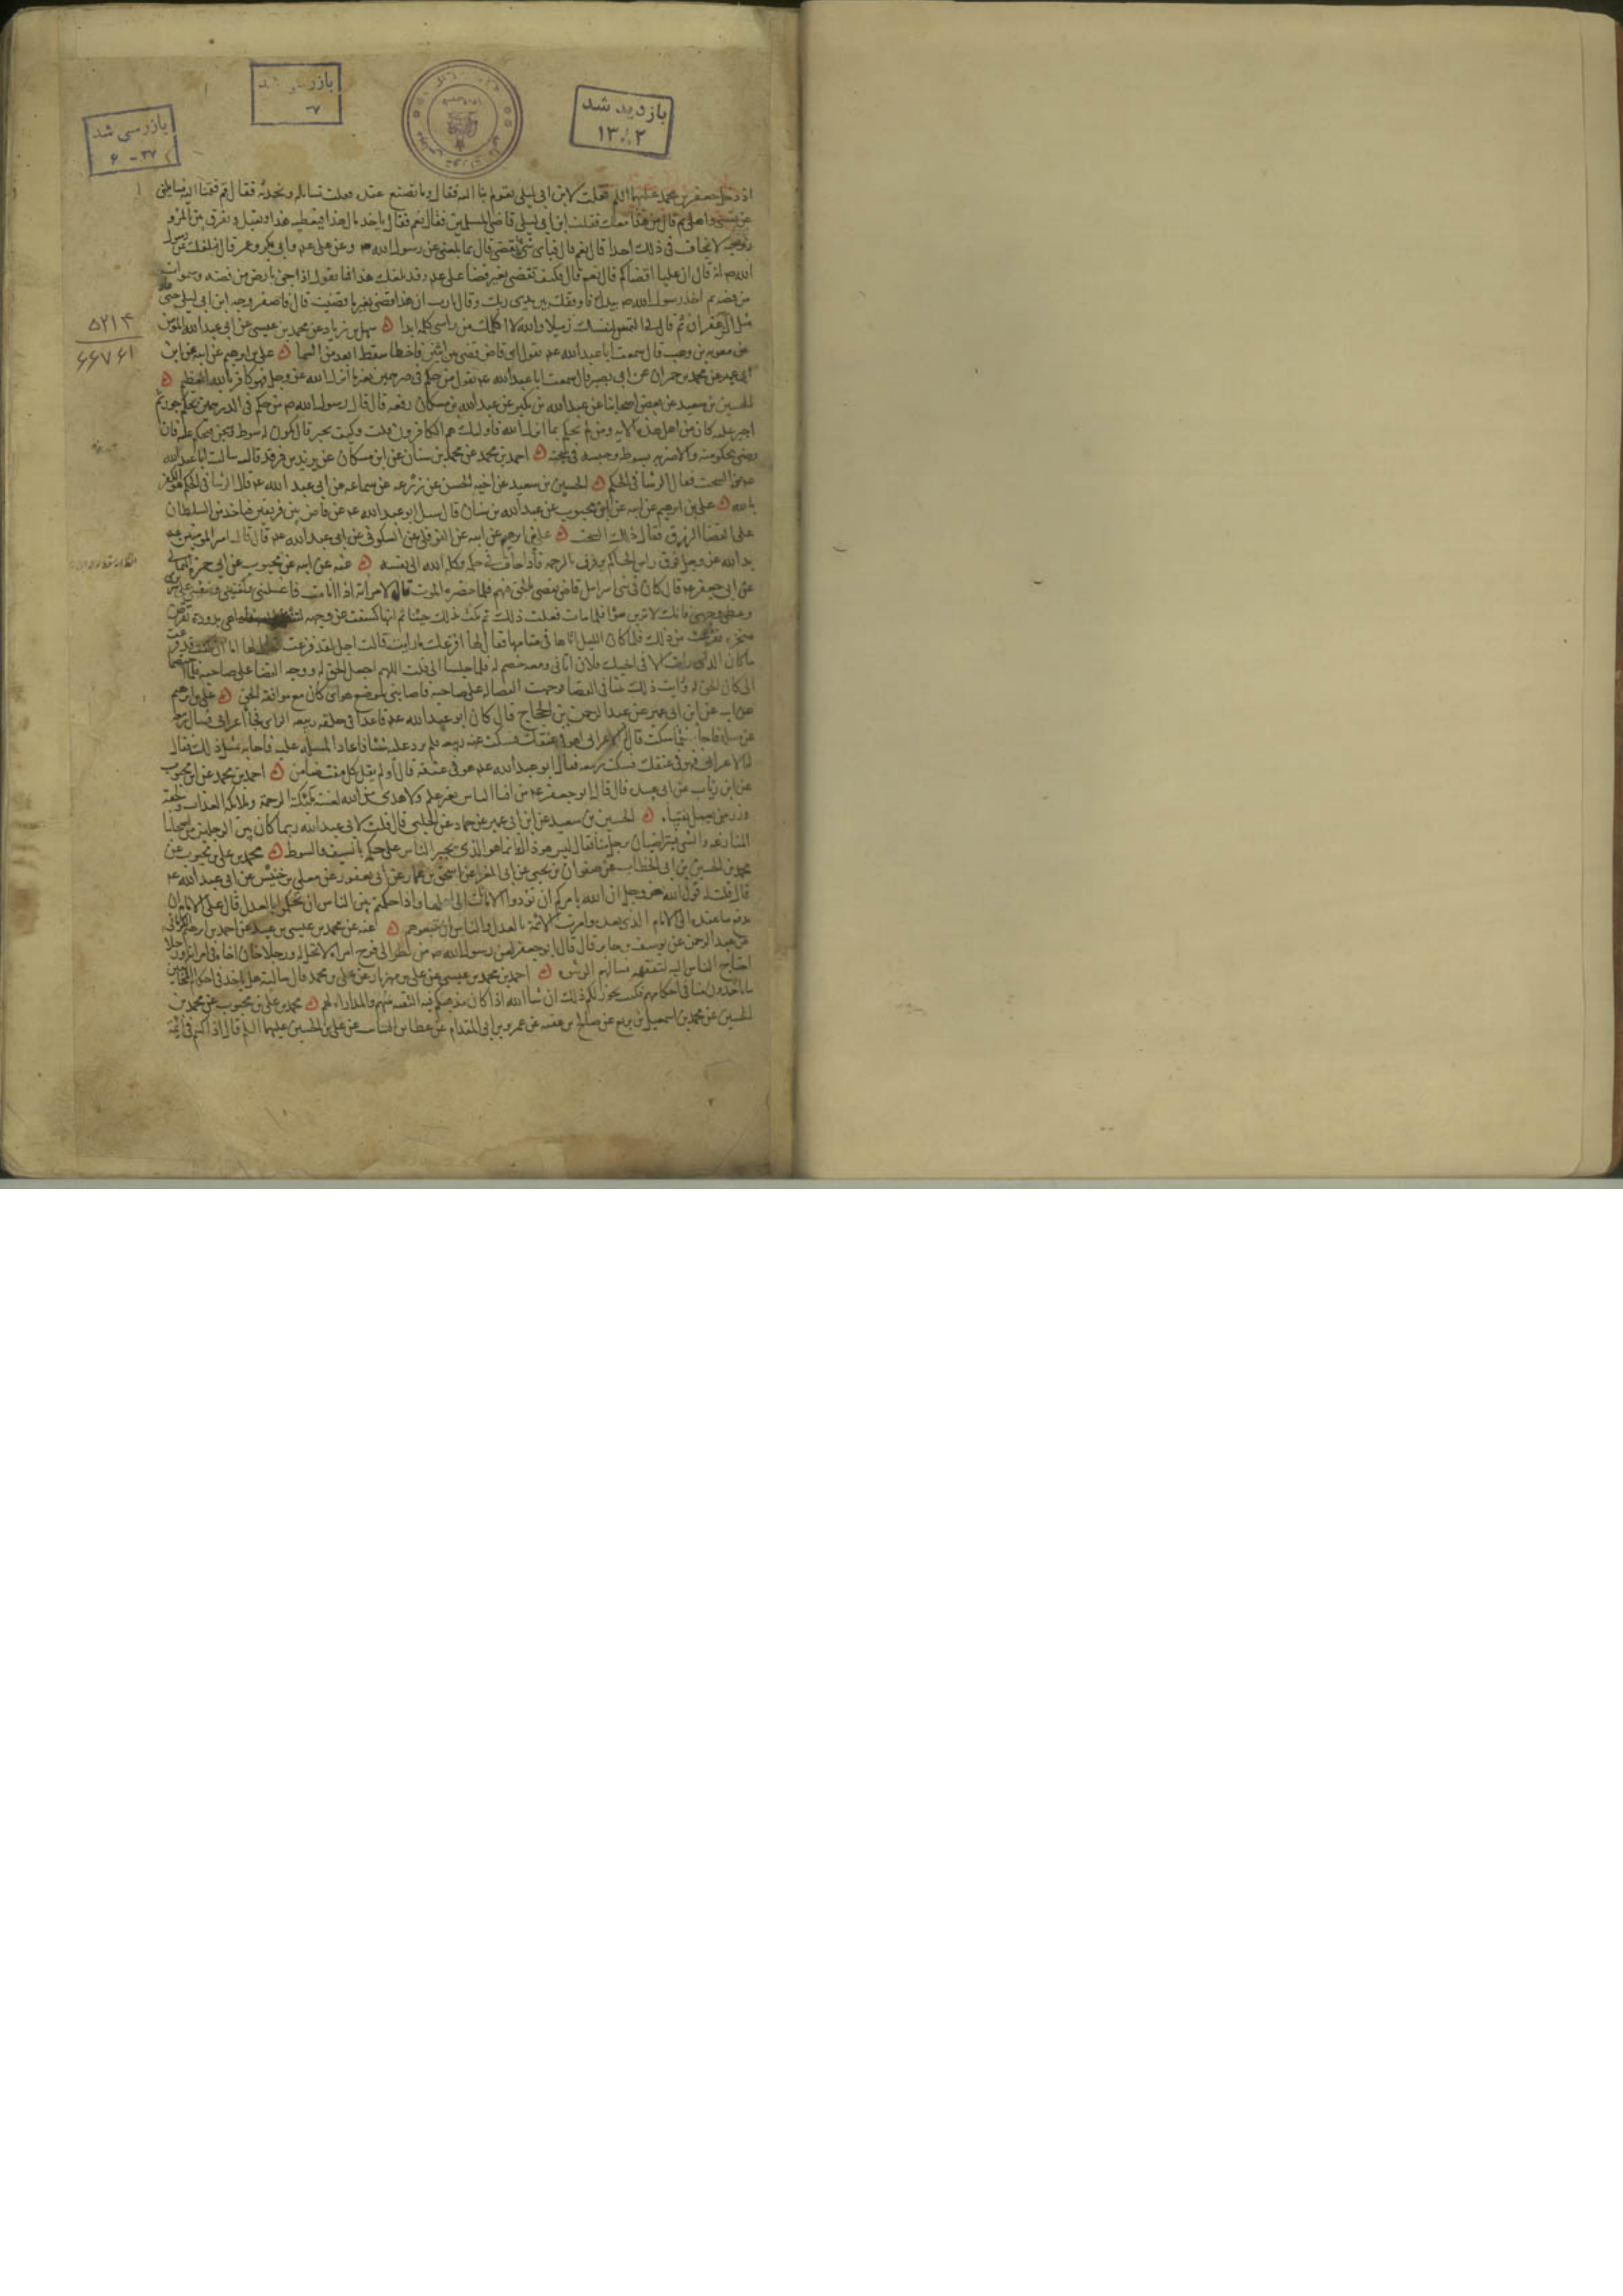 بازرسی شد
بازدید شد
۱۳۸۲
بازرسی شد
۶ - ۳۷
۵۲۱۴
۶۶۷۶۱
اذ دخل جعفر بن محمد علیهما السلم فقلت لابن ابی لیلی تقوم بنا الیه فقال وما نصنع عنده فقلت نسایله ونحدثه فقال قم فقمنا الیه فسایلنی
عن نفسی واهلی ثم قال من هذا معک فقلت ابن ابی لیلی قاضی المسلمین فقال نعم فقال تاخذ مال هذا فتعطیه هذا وتقتل وتفرق بین المرء
وزوجه لا تخاف فی ذلک احدا قال نعم قال فبای شیء تقضی قال بما بلغنی عن رسول الله ص وعن علی عم وابی بکر وعمر قال فبلغک عن رسول
الله ص انه قال ان علیا اقضاکم قال نعم قال فکیف تقضی بغیر قضا علی عم وقد بلغک هذا فما تقول اذا جئ بارض من فضه وسموات
من فضه ثم اخذ رسول الله ص بیدک فاوقفک بین یدی ربک وقال یا رب ان هذا قضی بغیر ما قضیت قال فاصفر وجه ابن ابی لیلی حتی عاد
مثل الزعفران ثم قال لی التمس لنفسک زمیلا والله لا اکلمک من راسی کلمه ابدا سهل بن زیاد عن محمد بن عیسی عن ابی عبد الله المومن
عن معویه بن وهب قال سمعت ابا عبدالله عم یقول ای قاض قضی بین اثنین فاخطا سقط ابعد من السما علی بن ابرهیم عن ابیه عن ابن
ابی عمیر عن محمد بن حمران عن ابی بصیر قال سمعت ابا عبدالله عم یقول من حکم فی درهمین بغیر ما انزل الله عز وجل فهو کافر بالله العظیم
الحسین بن سعید عن بعض اصحابنا عن عبدالله بن بکیر عن عبدالله بن مسکان رفعه قال قال رسول الله ص من حکم فی الدرهمین بحکم جور ثم
اجبر علیه کان من اهل هذه الایه ومن لم یحکم بما انزل الله فاولئک هم الکافرون قلت وکیف یجبر قال یکون له سوط وسجن فیحکم علیه فان
رضی بحکومته والا ضربه بسوطه وحبسه فی سجنه احمد بن محمد عن محمد بن سنان عن ابن مسکان عن یزید بن فرقد قال سالت ابا عبدالله
عم عن السحت فقال الرشا فی الحکم الحسین بن سعید عن اخیه الحسن عن زرعه عن سماعه عن ابی عبد الله عم قال الرشا فی الحکم هو الکفر
بالله علی بن ابرهیم عن ابیه عن ابن محبوب عن عبدالله بن سنان قال سئل ابو عبدالله عم عن قاض بین فریقین یاخذ من السلطان
علی القضا الرزق فقال ذلک السحت علی بن ابرهیم عن ابیه عن النوفلی عن السکونی عن ابی عبدالله عم قال قال امیر المومنین عم
ید الله عز وجل فوق راس الحاکم ترفرف بالرحمه فاذا حاف فی حکمه وکله الله الی نفسه عنه عن ابیه عن محبوب عن ابی حمزه الثمالی
عن ابی جعفر عم قال کان فی بنی اسرائیل قاض یقضی بالحق فیهم فلما حضره الموت قال لامراته اذا انا مت فاغسلینی وکفنینی وضعینی علی سریری
وغطی وجهی فانک لا ترین سوءا فلما مات فعلت ذلک ثم مکثت بذلک حینا ثم انها کشفت عن وجهه بدودة تقرض
منخره ففزعت من ذلک فلما کان اللیل اتاها فی منامها فقال لها افزعک ما رایت قالت اجل لقد فزعت
ما کان الذی رایت الا فی اخیک فلان اتانی ومعه خصم له فلما جلسا الی قلت اللهم اجعل الحق له ووجه القضا علی صاحبه
الی کان الحق له ورایت ذلک بینا فی القضا فوجهت القضا له علی صاحبه فاصابنی لموضع هوای کان مع موافقه الحق علی بن ابرهیم
عن ابیه عن ابن ابی عمیر عن عبد الرحمن بن الحجاج قال کان ابو عبدالله عم قاعدا فی حلقه ربیعه الرای فجا اعرابی فسال ربیعه
عن مسله فاجابه فلما سکت قال له الاعرابی اهو فی عنقک فسکت عنه ربیعه فلم یرد علیه شیئا فاعاد المسله علیه فاجابه بمثل ذلک فقال
له الاعرابی اهو فی عنقک فسکت ربیعه فقال ابو عبدالله عم هو فی عنقه قال اولم یقل کل مفت ضامن احمد بن محمد عن ابن محبوب
عن ابن رئاب عن ابی عبیده قال قال ابو جعفر عم من افتا الناس بغیر علم ولا هدی من الله لعنته ملئکة الرحمة وملایکه العذاب ولحقه
وزر من یعمل بفتیاه الحسین بن سعید عن ابن ابی عمیر عن حماد عن الحلبی قال قلت لابی عبدالله ربما کان بین الرجلین من اصحابنا
المنازعه والشی فیتراضیان برجل منا فقال لیس هو ذاک انما هو الذی یجبر الناس علی حکمه بالسیف والسوط محمد بن علی بن محبوب عن
محمد بن الحسین بن ابی الخطاب عن صفوان بن یحیی عن ابی المغرا عن اسحق بن عمار عن ابن ابی یعفور عن معلی بن خنیس عن ابی عبدالله عم
قال قلت له قول الله عز وجل ان الله یامرکم ان تودوا الامانات الی اهلها واذا حکمتم بین الناس ان تحکموا بالعدل قال علی الامام ان
یدفع ما عنده الی الامام الذی بعده وامرت الائمة بالعدل والناس ان یتبعوهم عنه عن محمد بن عیسی بن عبید عن احمد بن ابرهیم الکرمانی
عن عبد الرحمن عن یوسف بن جابر قال قال ابو جعفر لعن رسول الله ص من نظر الی فرج امراة لا تحل له ورجلا خان اخاه فی امراته ورجلا
احتاج الناس الیه لتفقهه فسالهم الرشوه احمد بن محمد بن عیسی عن علی بن مهزیار عن علی بن محمد قال سالته هل ناخذ فی احکام المخالفین
ما یاخذون منا فی احکامهم فکتب یجوز لکم ذلک ان شا الله اذا کان مذهبکم فیه التقیه منهم والمداراه لهم محمد بن علی بن محبوب عن محمد بن
الحسین عن محمد بن اسمعیل بن بزیع عن صالح بن عقبه عن عمرو بن ابی المقدام عن عطا بن السائب عن علی بن الحسین علیهما السلم قال اذا کنتم فی ائمة